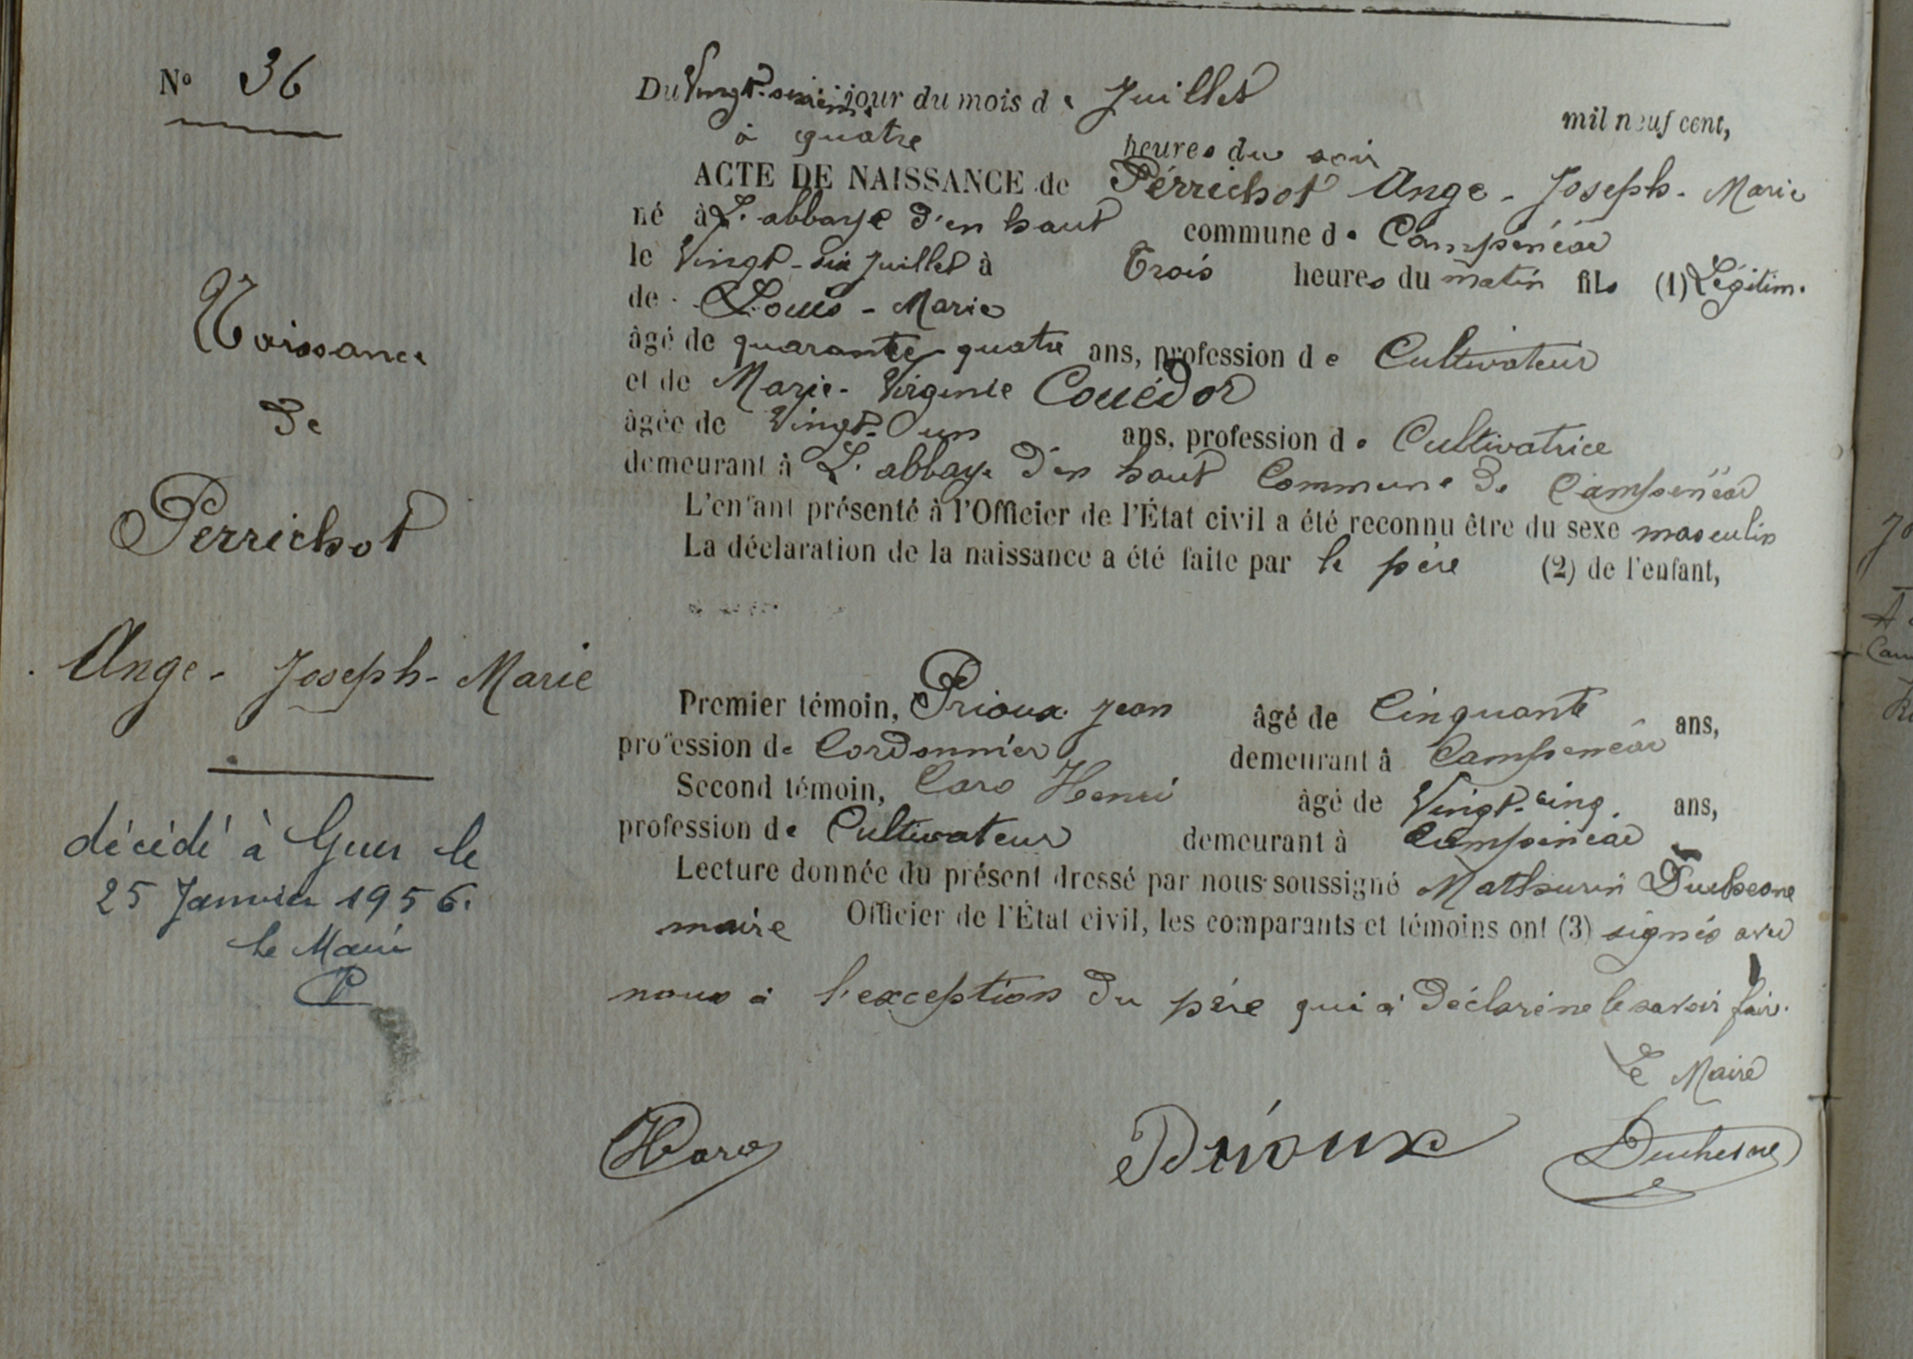 N° 36
Naissance
de
Perrichot
Ange - Joseph - Marie
décédé à Guer le
25 Janvier 1956.
le Maire
Du Vingt-sixième jour du mois de Juillet mil neuf cent,
à quatre heures du soir
ACTE DE NAISSANCE de Pérrichot Ange - Joseph - Marie
né à L'abbaye d'en haut commune de Campénéac
le Vingt-six juillet à Trois heures du matin fils (1) Légitim.
de Louis - Marie
âgé de quarante quatre ans, profession de Cultivateur
et de Marie - Virginie Couédor
âgée de Vingt un ans, profession de Cultivatrice
demeurant à L'abbaye d'en haut Commune de Campénéac
L'enfant présenté à l'Officier de l'État civil a été reconnu être du sexe masculin
La déclaration de la naissance a été faite par le père (2) de l'enfant,
Premier témoin, Prioux Jean âgé de Cinquante ans,
profession de Cordonnier demeurant à Campénéac
Second témoin, Caro Henri âgé de Vingt-cinq ans,
profession de Cultivateur demeurant à Campénéac
Lecture donnée du présent dressé par nous soussigné Mathurin Duchesne
maire Officier de l'État civil, les comparants et témoins ont (3) signés avec
nous à l'exception du père qui à déclaré ne le savoir faire.
Le Maire
HCaro Prioux Duchesne